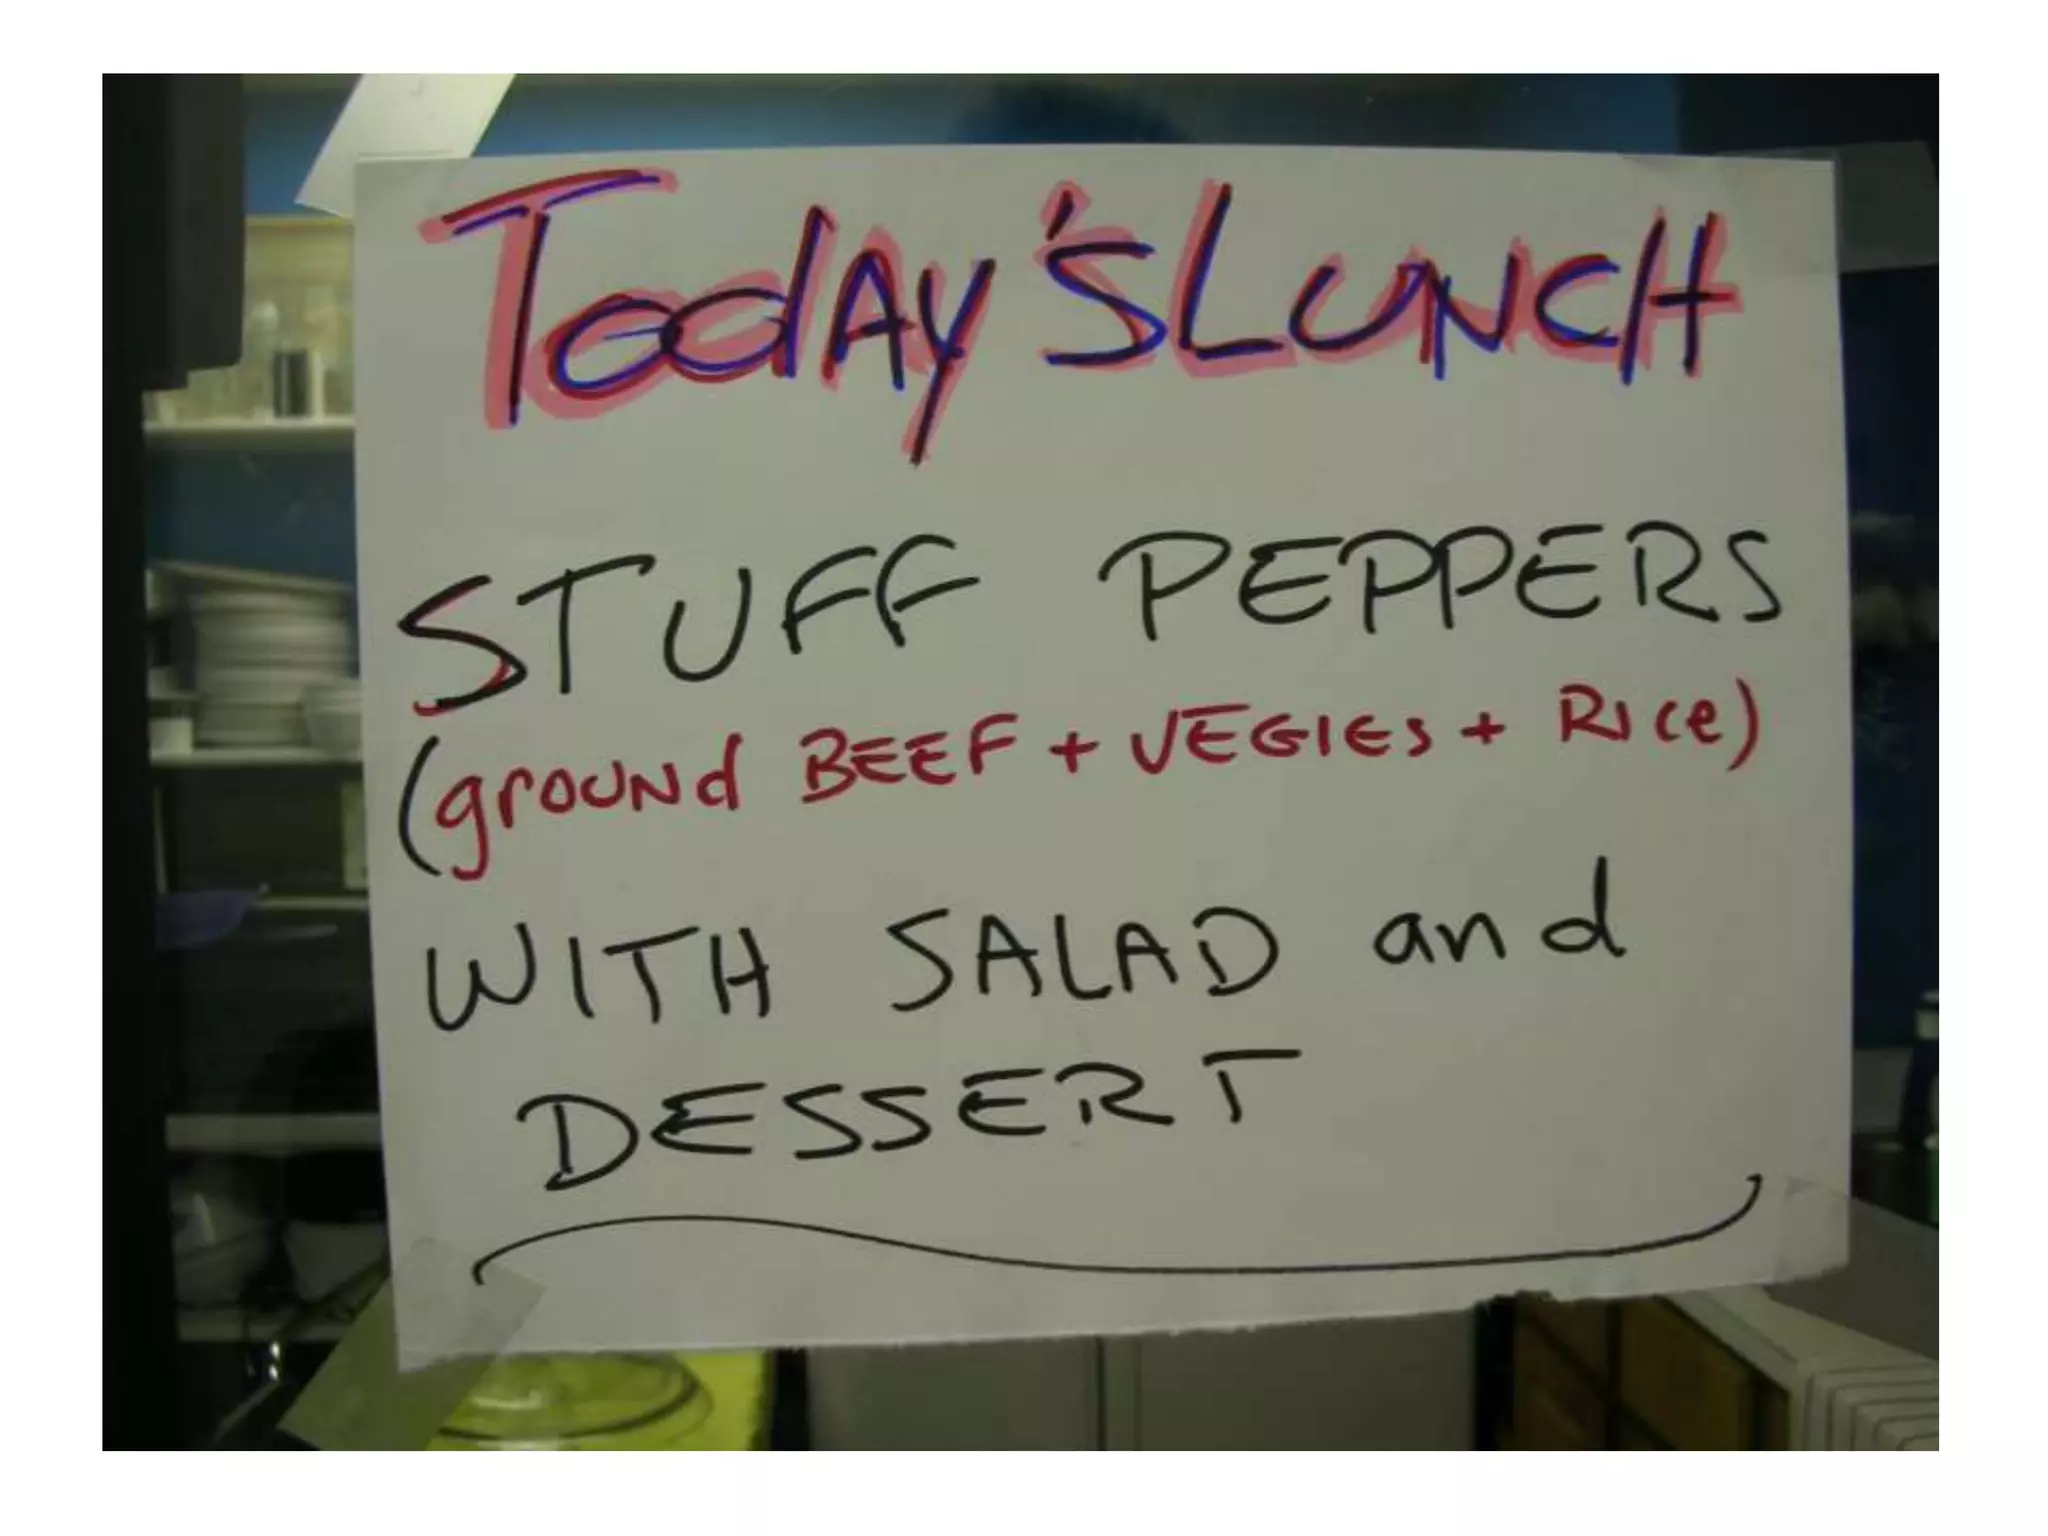 Today's LUNCH
STUFF PEPPERS
(ground BEEF + VEGIES + Rice)
WITH SALAD and
DESSERT